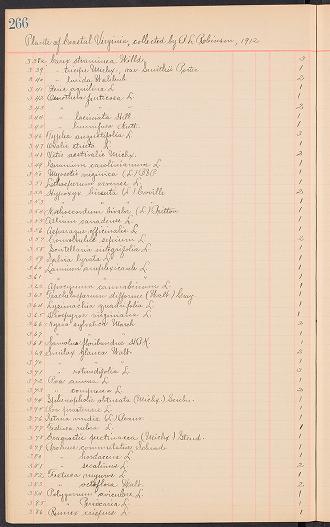 266
Plants of Coastal Virginia, collected by B. L. Robinson, 1912
338a Carex straminea Willd. 3
339 " Michx. var. Porter 1
340 " lurida Wahlenb 2
341 aquilina L. 1
342 Oenothera fruticosa L. 1
343 " " 2
344 " laciniata Hill 1
345 " humifusa Nutt. 1
346 angustifolia L. 3
347 Oxalis stricta L. 1
348 Vitis aestivalis Michx. 2
349 Geranium carolinianum L. 1
350 Myosotis virginica (L.) BSP 1
351 Lithospermum arvense L. 1
352 Hypoxis hirsuta (L.) Coville 2
353 " "
354 Nothoscordum bivalve (L.) Britton
355 canadense L.
356 Asparagus officinalis L.
357 Convolvulus sepium L.
358 Scutellaria integrifolia L.
359 Salvia lyrata L.
360 Lamium amplexicaule L.
361 " "
362 Apocynum cannabinum L.
363 Trachelospermum difforme (Walt.) Gray
364 Lysimachia quadrifolia L.
365 Diospyros virginiana L.
366 Nyssa sylvatica Marsh
367 " "
368 Samolus floribundus HBK.
369 Smilax glauca Walt.
370 " "
371 " rotundifolia L.
372 Poa annua L.
373 " compressa L.
374 Sphenopholis obtusata (Michx.) Scribn.
375 Poa pratensis L.
376 Setaria viridis (L.) Beauv.
377 Festuca rubra L.
378 Eragrostis pectinacea (Michx.) Steud.
379 Bromus commutatus Schrad
380 " hordaceus L.
381 " secalinus L.
382 Festuca myuros L.
383 " octoflora Walt.
384 Polygonum aviculare L.
385 " Persicaria L.
386 Rumex crispus L.